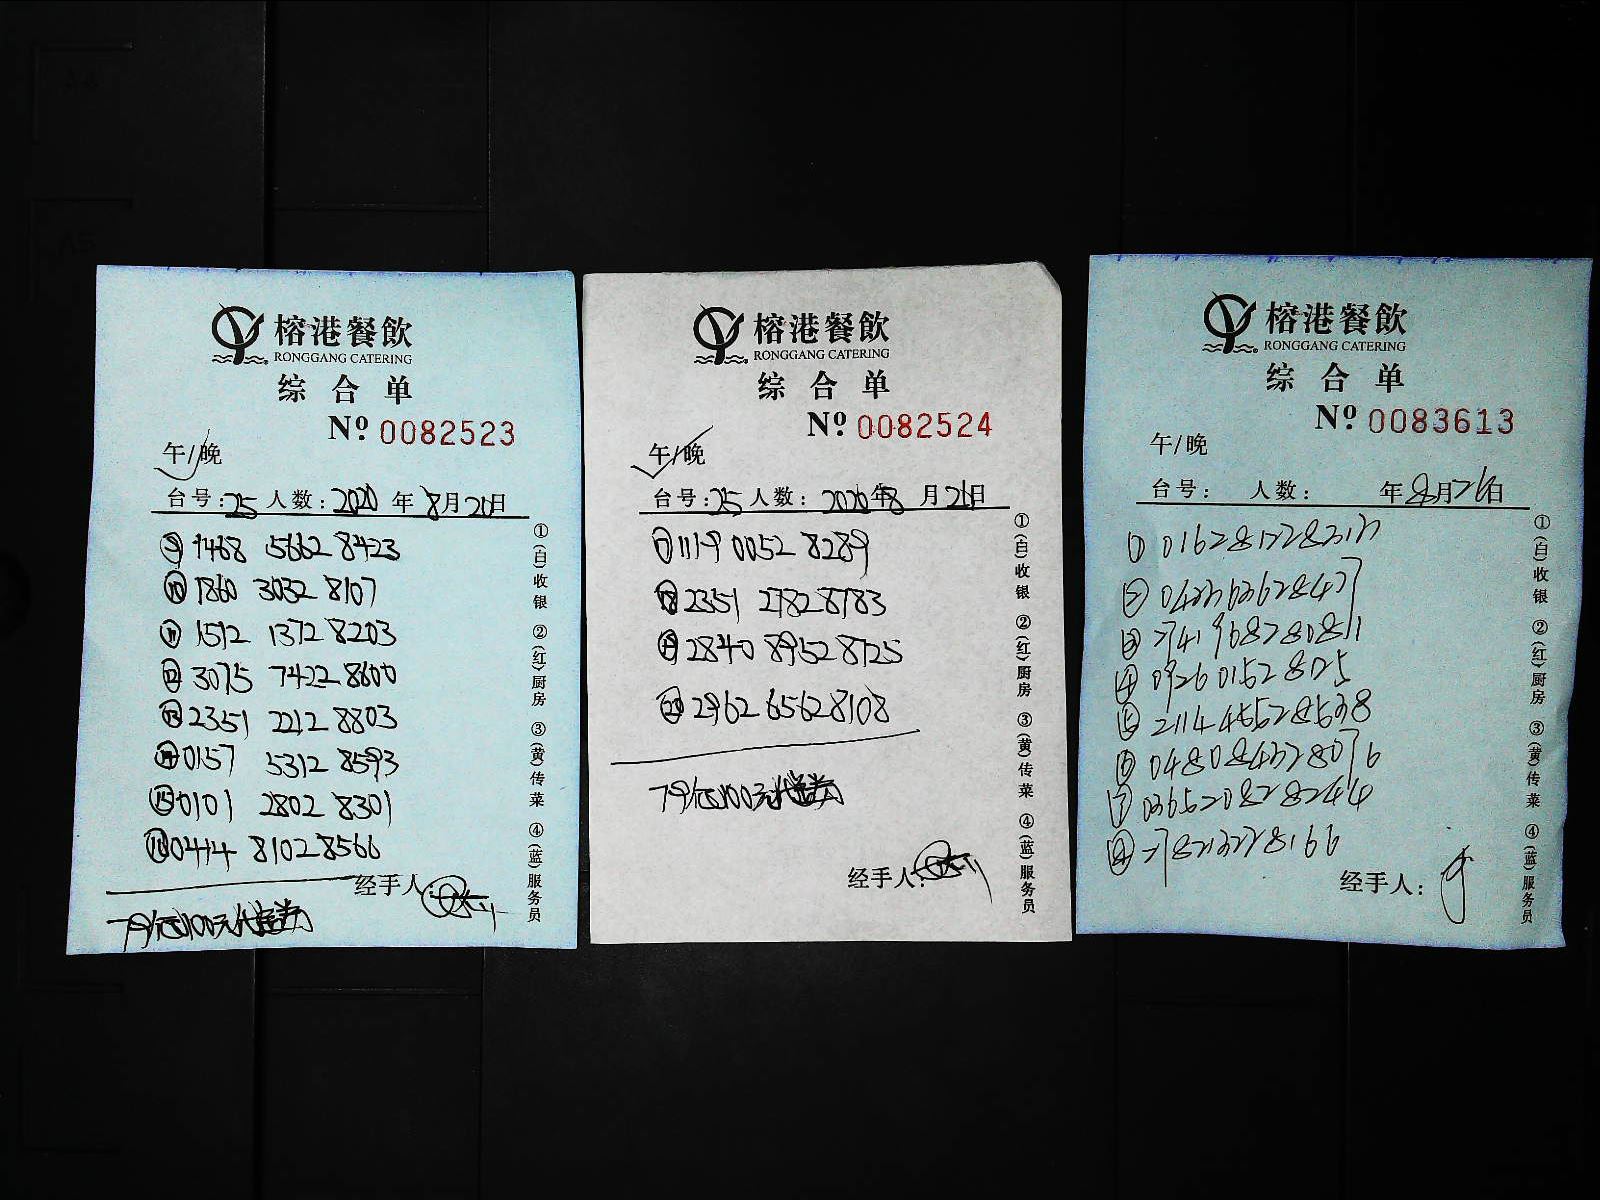 榕港餐飲
RONGGANG CATERING
综合单
Nº 0082523
午/晚
台号:25 人数: 2020 年 8月20日
⑨ 9468 5662 8423
⑩ 1860 3032 8107
⑪ 1512 1372 8203
⑫ 3075 7422 8600
⑬ 2351 2212 8803
⑭ 0157 5312 8593
⑮ 0101 2802 8301
⑯ 0414 8102 8566
经手人:
79元100元代金券
①(白)收银 ②(红)厨房 ③(黄)传菜 ④(蓝)服务员
榕港餐飲
RONGGANG CATERING
综合单
Nº 0082524
午/晚
台号:25 人数: 2020年8月21日
⑰ 1119 0052 8289
⑱ 2351 2782 8783
⑲ 2840 8952 8725
⑳ 2962 6562 8108
79元100元代金券
经手人:
①(白)收银 ②(红)厨房 ③(黄)传菜 ④(蓝)服务员
榕港餐飲
RONGGANG CATERING
综合单
Nº 0083613
午/晚
台号: 人数: 年8月26日
①
②
③
④ 0926 0152 8125
⑤ 2114 4552 8538
⑥ 0480 8432 8076
⑦ 0365 2082 8244
⑧
经手人:
①(白)收银 ②(红)厨房 ③(黄)传菜 ④(蓝)服务员